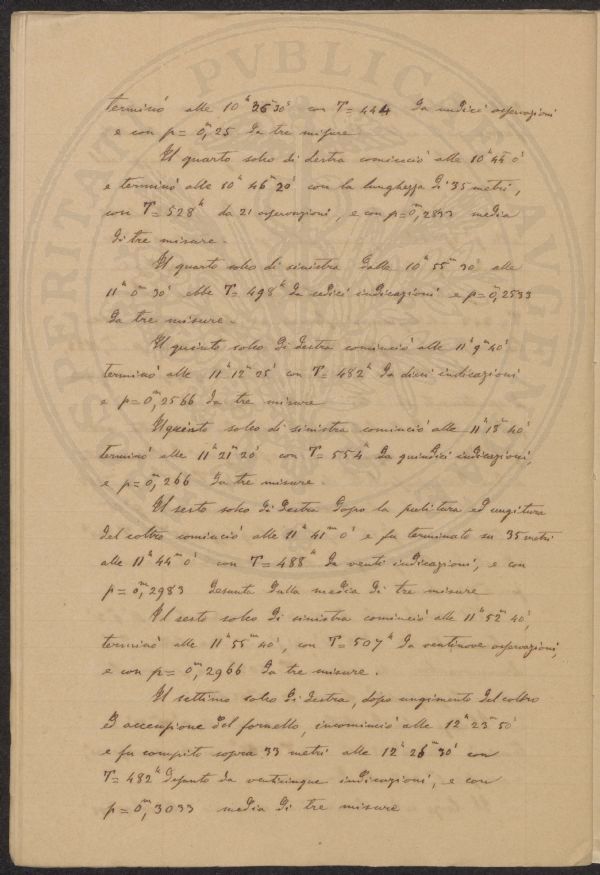 terminò alle 10ʰ 36ᵐ 30ˢ con T = 444 da undici osservazioni
e con p = 0ᵐ,25 da tre misure
Il quarto solco di destra cominciò alle 10ʰ 44ᵐ 0ˢ
e terminò alle 10ʰ 46ᵐ 20ˢ con la lunghezza di 35 metri,
con T = 528ᵏ da 21 osservazioni, e con p = 0ᵐ,2833 media
di tre misure.
Il quarto solco di sinistra dalle 10ʰ 55ᵐ 30ˢ alle
11ʰ 0ᵐ 30ˢ ebbe T = 498ᵏ da sedici indicazioni e p = 0ᵐ,2533
da tre misure.
Il quinto solco di destra cominciò alle 11ʰ 9ᵐ 40ˢ
terminò alle 11ʰ 12ᵐ 25ˢ con T = 482ᵏ da dieci indicazioni
e p = 0ᵐ,2566 da tre misure
Il quinto solco di sinistra cominciò alle 11ʰ 18ᵐ 40ˢ
terminò alle 11ʰ 21ᵐ 20ˢ con T = 554ᵏ da quindici indicazioni,
e p = 0ᵐ,266 da tre misure.
Il sesto solco di destra dopo la pulitura ed ungitura
del coltro cominciò alle 11ʰ 41ᵐ 0ˢ e fu terminato su 35 metri
alle 11ʰ 44ᵐ 0ˢ con T = 488ᵏ da venti indicazioni, e con
p = 0ᵐ,2983 desunta dalla media di tre misure
Il sesto solco di sinistra cominciò alle 11ʰ 52ᵐ 40ˢ,
terminò alle 11ʰ 55ᵐ 40ˢ, con T = 507ᵏ da ventinove osservazioni,
e con p = 0ᵐ,2966 da tre misure.
Il settimo solco di destra, dopo ungimento del coltro
ed accensione del fornello, incominciò alle 12ʰ 23ᵐ 50ˢ
e fu compito sopra 33 metri alle 12ʰ 26ᵐ 30ˢ con
T = 482ᵏ desunto da venticinque indicazioni, e con
p = 0ᵐ,3033 media di tre misure